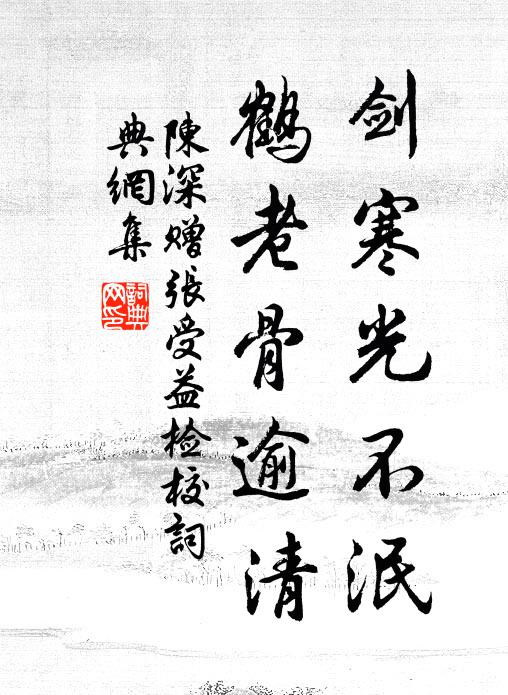 剑寒光不泯
鹤老骨逾清
陳深赠張受益检校詞
典網集
詞典网印